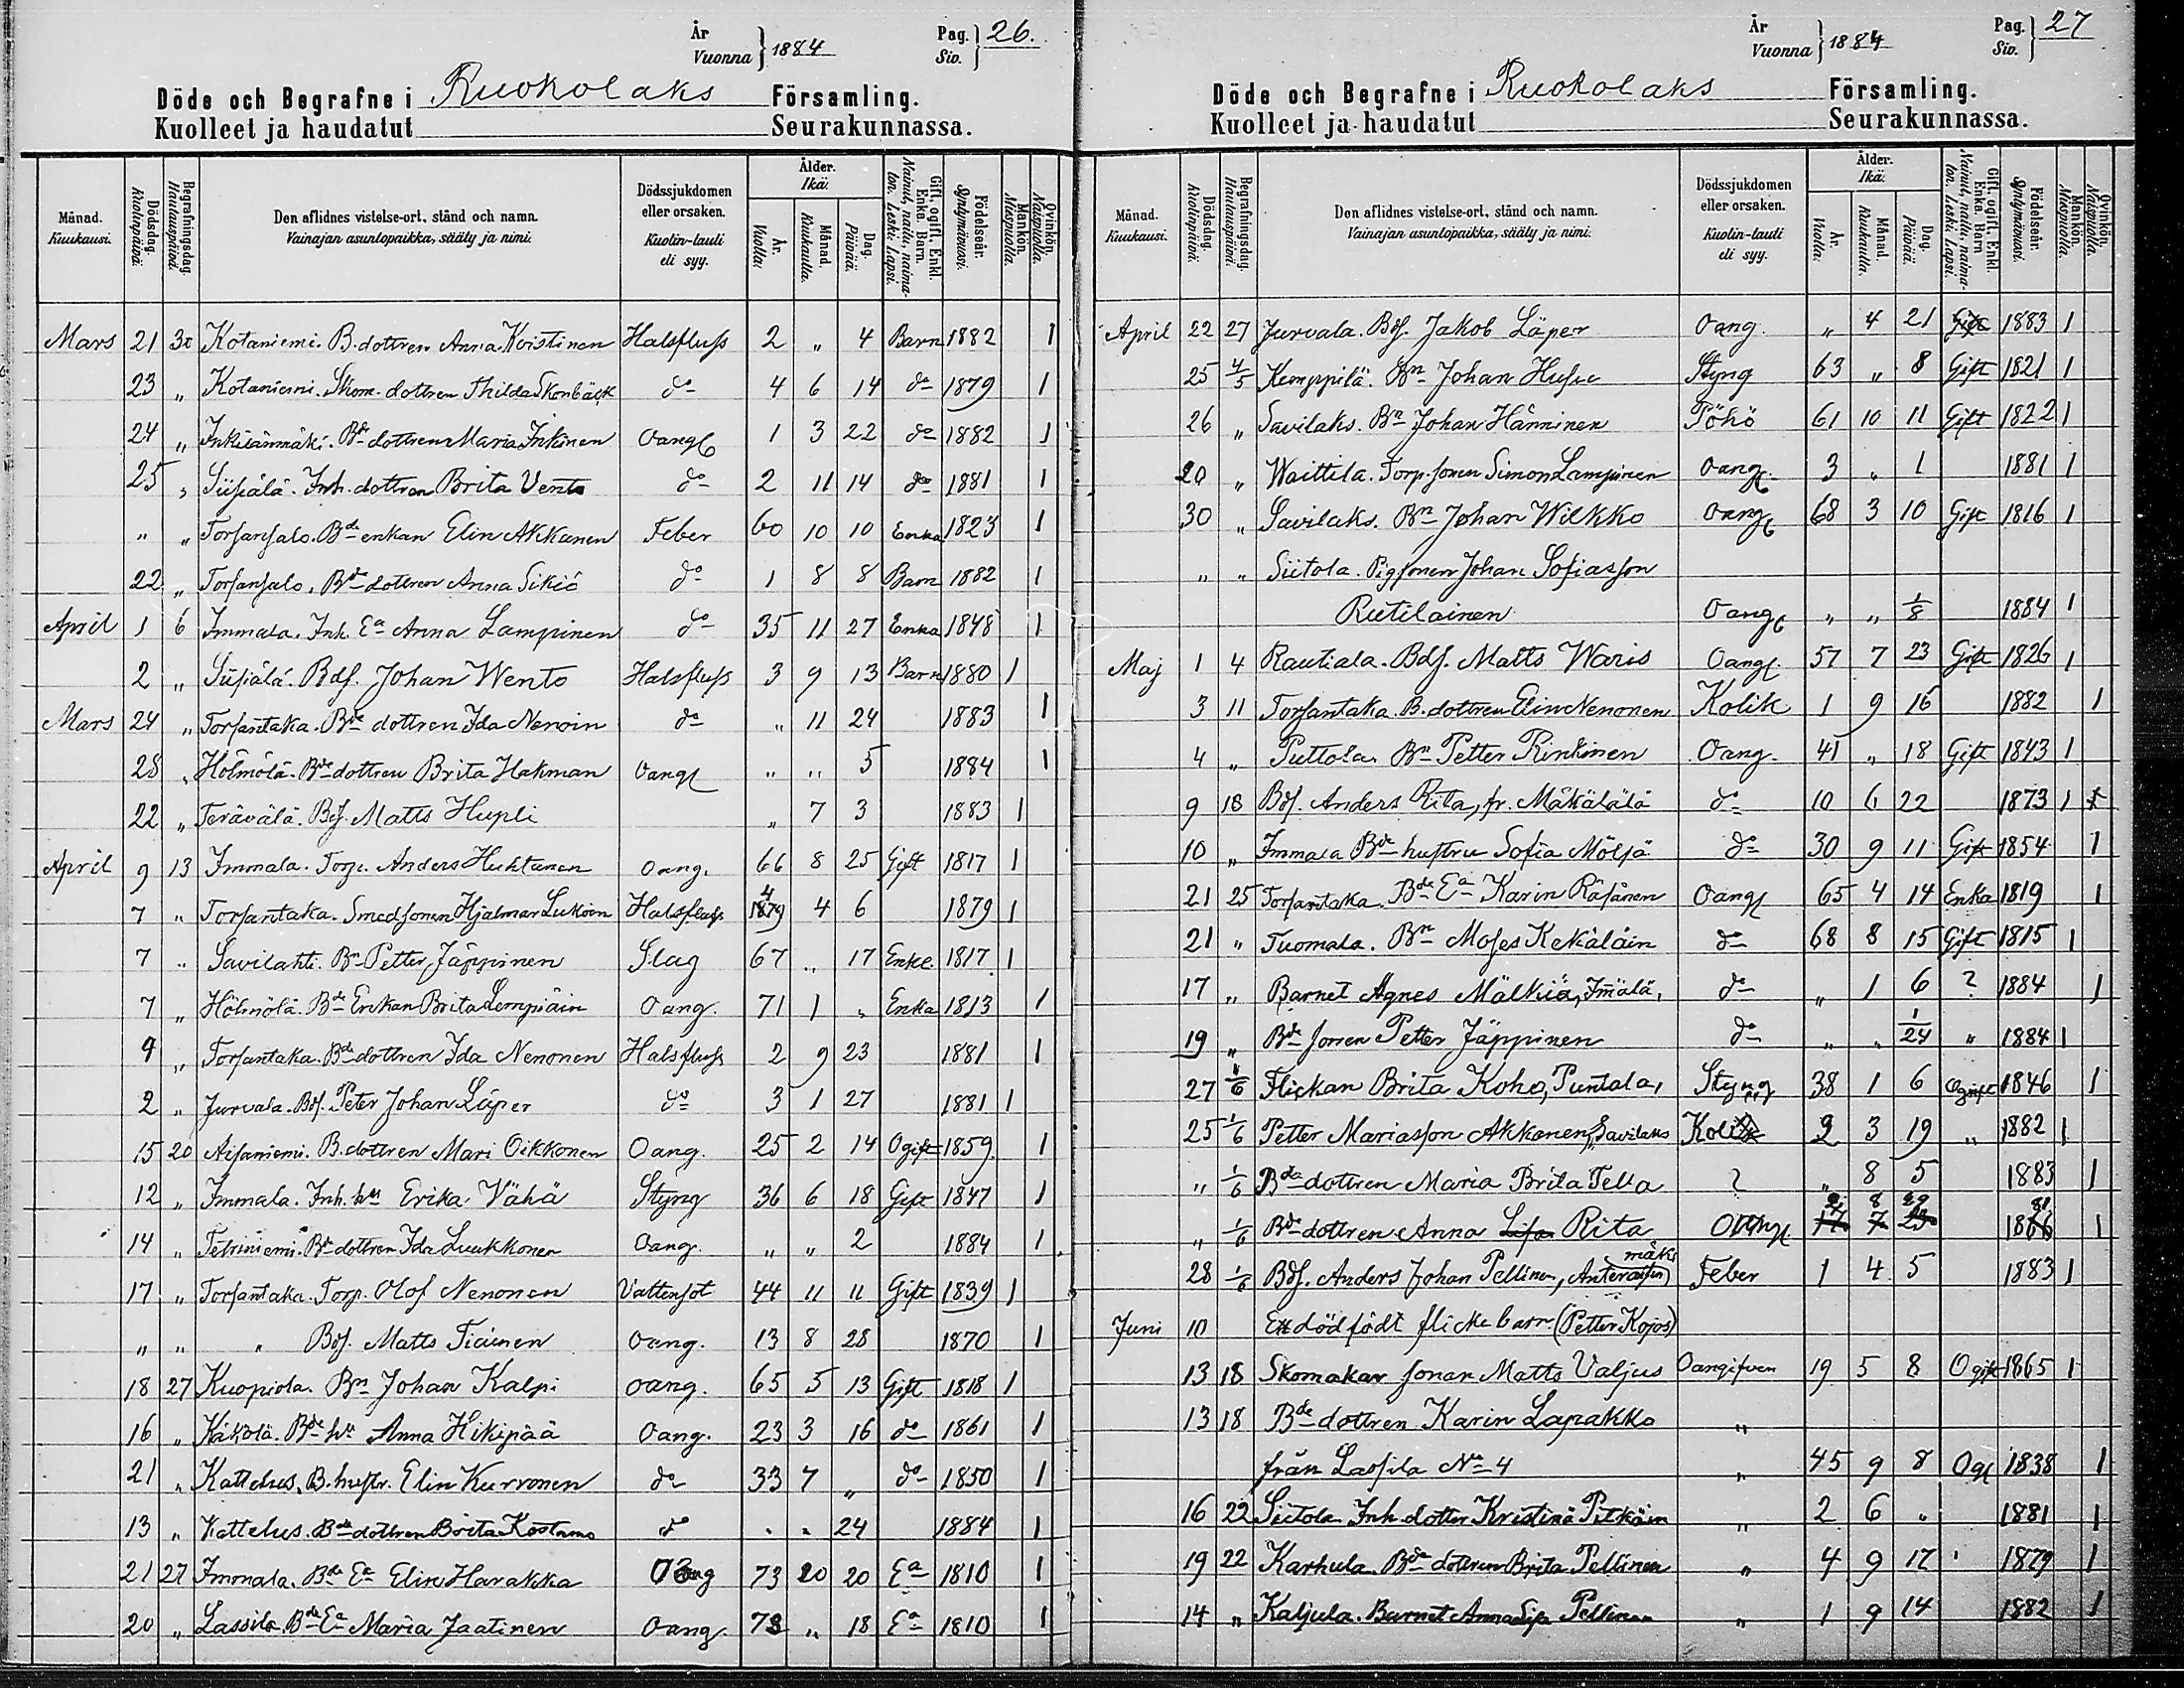 År
Vuonna } 1884
Pag.
Siv. } 26.
Döde och Begrafne i Ruokolaks Församling.
Kuolleet ja haudatut Seurakunnassa.
Månad. Kuukausi.
Dödsdag. Kuolinpäivä.
Begrafningsdag. Hautauspäivä.
Den aflidnes vistelse-ort, stånd och namn.
Vainajan asuntopaikka, sääty ja nimi.
Dödssjukdomen eller orsaken.
Kuolin-tauti eli syy.
Ålder. Ikä.
År. Vuotta.
Månad. Kuukautta.
Dag. Päivää.
Gift, ogift, Enkl. Enka. Barn.
Nainut, naitu, naimaton. Leski. Lapsi.
Födelseår. Syntymävuosi.
Mankön. Miespuolia.
Qvinkön. Naispuolia.
Mars 21 30 Kotaniemi. B. dottren Anna Koistinen Halsfluss 2 „ 4 Barn 1882 1
23 „ Kotaniemi. Skom. dottren Thilda Skonbäck do 4 6 14 do 1879 1
24 „ Inkilänmäki. Bde dottren Maria Inkinen Oangf 1 3 22 do 1882 1
25 „ Siisiälä. Inh. dottren Brita Vento do 2 11 14 do 1881 1
„ „ Torsansalo. Bde enkan Elin Akkanen Feber 60 10 10 Enka 1823 1
22 „ Torsansalo. Bde dottren Anna Sikiö do 1 8 8 Barn 1882 1
April 1 6 Immala. Inh. Ea Anna Lampinen do 35 11 27 Enka 1848 1
2 „ Siisiälä. Bds. Johan Wento Halsfluss 3 9 13 Barn 1880 1
Mars 24 „ Torsantaka. Bde dottren Ida Nenoin do „ 11 24 1883 1
28 „ Hölmölä. Bde dottren Brita Hakman Oangf „ „ 5 1884 1
22 „ Terävälä. Bds. Matts Hupli „ 7 3 1883 1
April 9 13 Immala. Torp. Anders Huktanen Oang. 66 8 25 Gift 1817 1
7 „ Torsantaka. Smedsonen Hjalmar Lukoin Halsfluss 4 1879 4 6 1879 1
7 „ Savilahti. Bn Petter Jäppinen Slag 67 „ 17 Enkl. 1817 1
7 „ Hölmölä. Bde Enkan Brita Lempiäin Oang. 71 1 „ Enka 1813 1
9 „ Torsantaka. Bde dottren Ida Nenonen Halsfluss 2 9 23 1881 1
2 „ Jurvala. Bds. Peter Johan Läper do 3 1 27 1881 1
15 20 Aisaniemi. B. dottren Mari Oikkonen Oang. 25 2 14 Ogift 1859 1
12 „ Immala. Inh. hu Erika Vähä Styng 36 6 18 Gift 1847 1
14 „ Tetriniemi. Bde dottren Ida Luukkonen Oang. „ „ 2 1884 1
17 „ Torsantaka. Torp. Olof Nenonen Vattensot 44 11 11 Gift 1839 1
„ „ „ Bds. Matts Tiainen Oang. 13 8 28 1870 1
18 27 Kuopiola. Bn Johan Kalpi Oang. 65 5 13 Gift 1818 1
16 „ Käkölä. Bde hu Anna Hikipää Oang. 23 3 16 do 1861 1
21 „ Kattelus. B. hustr. Elin Kurvonen do 33 7 „ do 1850 1
13 „ Kattelus. Bde dottren Brita Kostamo do „ „ 24 1884 1
21 27 Immala. Bde Ea Elin Harakka Oang 73 20 20 Ea 1810 1
20 „ Lassila Bde Ea Maria Jaatinen Oang. 73 „ 18 Ea 1810 1
År
Vuonna } 1884
Pag.
Siv. } 27
Döde och Begrafne i Ruokolaks Församling.
Kuolleet ja haudatut Seurakunnassa.
Månad. Kuukausi.
Dödsdag. Kuolinpäivä.
Begrafningsdag. Hautauspäivä.
Den aflidnes vistelse-ort, stånd och namn.
Vainajan asuntopaikka, sääty ja nimi.
Dödssjukdomen eller orsaken.
Kuolin-tauti eli syy.
Ålder. Ikä.
År. Vuotta.
Månad. Kuukautta.
Dag. Päivää.
Gift, ogift, Enkl. Enka. Barn
Nainut, naitu, naimaton. Leski. Lapsi.
Födelseår. Syntymävuosi.
Mankön. Miespuolia.
Qvinkön. Naispuolia.
April 22 27 Jurvala. Bds. Jakob Läper Oang. „ 4 21 Gift 1883 1
25 4/5 Kemppilä. Bn Johan Styng 63 „ 8 Gift 1821 1
26 „ Savilaks. Bn Johan Hänninen Töhö 61 10 11 Gift 1822 1
20 „ Waittila. Torp. sonen Simon Lampinen Oangf. 3 „ 1 1881 1
30 „ Savilaks. Bn Johan Wilkko Oangf 68 3 10 Gift 1816 1
„ „ Siitola. Pigsonen Johan Sofiasson
Rutilainen Oangf „ „ 1/8 1884 1
Maj 1 4 Rautiala. Bds. Matts Waris Oangf. 57 7 23 Gift 1826 1
3 11 Torsantaka. B. dottren Elin Nenonen Kolik 1 9 16 1882 1
4 „ Puttola. Bn Petter Rinkinen Oang. 41 „ 18 Gift 1843 1
9 18 Bds. Anders Rita, fr. Mäkälälä do 10 6 22 1873 1
10 „ Immala Bde hustru Sofia Mölsä do 30 9 11 Gift 1854 1
21 25 Torsantaka. Bde Ea Karin Räsänen Oangf 65 4 14 Enka 1819 1
21 „ Tuomala. Bn Moses Kekäläin do 68 8 15 Gift 1815 1
17 „ Barnet Agnes Mälkiä, Imälä. do „ 1 6 ? 1884 1
19 „ Bde sonen Petter Jäppinen do „ „ 1/24 „ 1884 1
27 1/6 Flickan Brita Koho, Puntala, Styng 38 1 6 Ogift 1846 1
25 1/6 Petter Mariasson Akkanen, Savilaks Kolik 2 3 19 „ 1882 1
„ 1/6 Bde dottren Maria Brita Tella ? „ 8 5 1883 1
„ 1/6 Bde dottren Anna Lisa Rita Oangf. 2 8 29 17 7 23 1881 1
mäki
28 1/6 Bds. Anders Johan Pellinen, Feber 1 4 5 1883 1
Juni 10 Ett dödfödt flickebarn. (Petter Kojos)
13 18 Skomakar sonen Matts Valjus Oangifven 19 5 8 Ogift 1865 1
13 18 Bde dottren Karin Lapakko „
från Lassila No 4 „ 45 9 8 Ogf 1838 1
16 22 Siitola Inh. dotter Kristina Pitkäin „ 2 6 „ 1881 1
19 22 Karhula. Bde dottren Brita Pellinen „ 4 9 17 1879 1
14 „ Kaljula. Barnet Anna Lisa Pellinen „ 1 9 14 1882 1